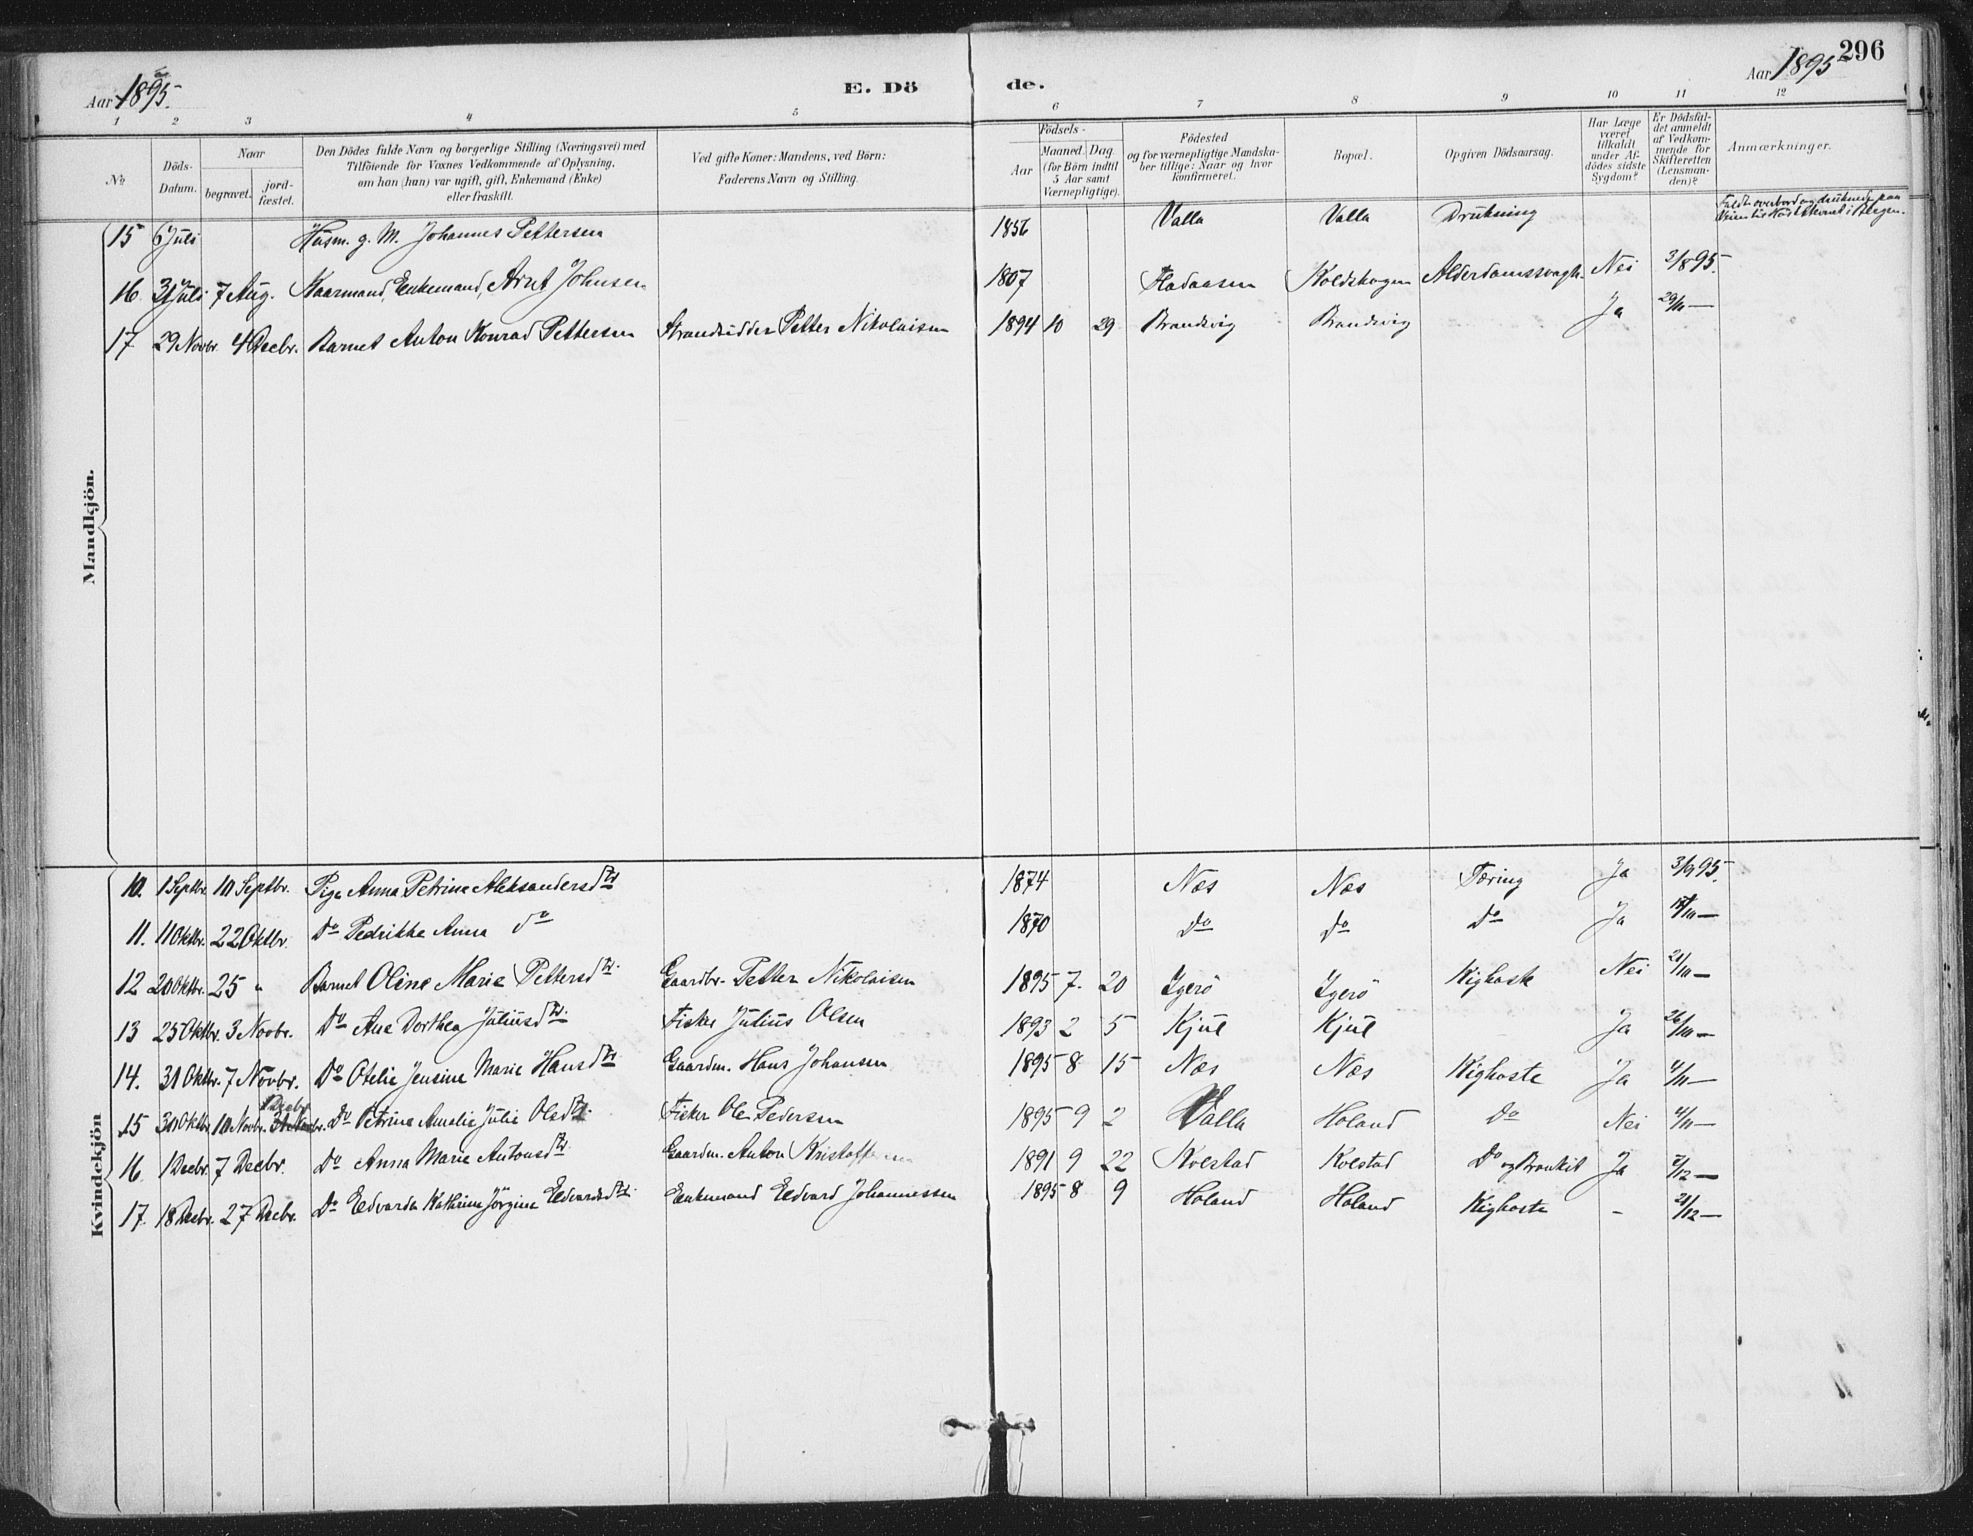 296
Aar 1895. E. Dö de. Aar 1895
1 2 3 4 5 6 7 8 9 10 11 12
No
Döds-Datum.
Naar begravet. jordfæstet.
Den Dödes fulde Navn og borgerlige Stilling (Næringsvei) med
Tilföiende for Voxnes Vedkommende af Oplysning,
om han (hun) var ugift, gift, Enkemand (Enke)
eller fraskilt.
Ved gifte Koner: Mandens, ved Börn:
Faderens Navn og Stilling.
Födsels-
Aar Maaned. Dag.
(for Börn indtil
5 Aar samt
Værnepligtige).
Födested
og for værnepligtige Mandska-
ber tillige: Naar og hvor
konfirmeret.
Bopæl.
Opgiven Dödsaarsag.
Har Læge
været
tilkaldt
under Af-
dödes sidste
Sygdom?
Er Dödsfal-
det anmeldt
af Vedkom-
mende for
Skifteretten
(Lensman-
den)?
Anmærkninger.
Mandkjön.
15 6 Juli Husm. g. M. Johannes Pettersen 1856 Valla Valla Drukning Faldt overbord og druknede paa
16 31 Juli 7 Aug. Kaarmand, Enkemand, Arnt Johnsen 1807 Fladaasen Koldskogen Alderdomssvagh. Nei 3/8 95.
17 29 Novbr 4 Decbr. Barnet Anton Konrad Pettersen Strandsidder Petter Nikolaisen 1894 10 29 Brandsvig Brandsvig Ja 29/11 —
Kvindekjön
10. 1 Septbr. 10 Septbr. Pige Anna Petrine Aleksandersdtr 1874 Næs Næs Tæring Ja 3/9 95.
11. 11 Oktbr. 22 Oktbr. Do Pedrikke Anna do 1870 Do Do Do Ja
12 20 Oktbr. 25 " Barnet Oline Marie Pettersdtr. Gaardbr. Petter Nikolaisen 1895 7. 20 Igerö Igerö Kighoste Nei 21/10 —
13 25 Oktbr. 3 Novbr. Do Ane Dorthea Juliusdtr. Fisker Julius Olsen 1893 2 5 Kjul Kjul Ja 26/10 —
14. 31 Oktbr. 7 Novbr. Do Otelie Jensine Marie Hansdtr Gaardm. Hans Johansen 1895 8 15 Næs Næs Kighoste Ja 4/11 —
15 30 Oktbr. 10 Novbr. 1 Decbr. Do Petrine Amalie Julie Olsdtr. Fisker Ole Pedersen 1895 9 2 Valla Holand Do Nei 4/11 —
16 1 Decbr. 7 Decbr. Do Anna Marie Antonsdtr. Gaardm. Anton Kristoffersen 1891 9 22 Kvestad Kvestad Do og Bronkit Ja 7/12 —
17. 18 Decbr. 27 Decbr. Do Edvarda Kathrine Jörgine Edvardsdtr. Enkemand Edvard Johannessen 1895 8 9 Holand Holand Kighoste - 21/12 —